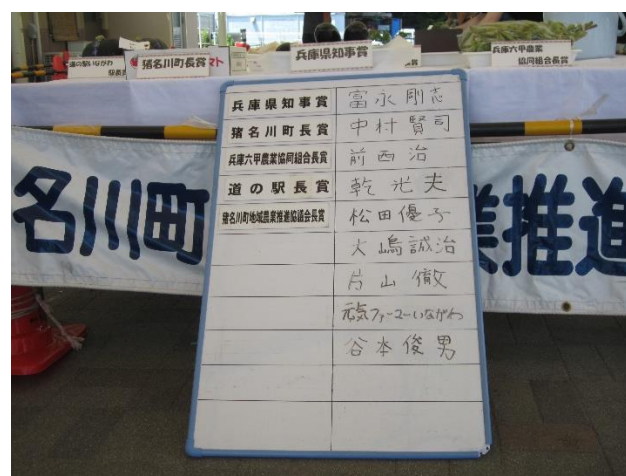 猪名川町長賞 マト
兵庫県知事賞
賞
兵庫六甲農業
協同組合長賞
兵庫県知事賞 富永剛志
猪名川町長賞 中村賢司
兵庫六甲農業協同組合長賞 前西治
道の駅長賞 乾光夫
猪名川町地域農業推進協議会長賞 松田優子
大嶋誠治
片山徹
元気ファーマーいながわ
谷本俊男
名川町
業推進